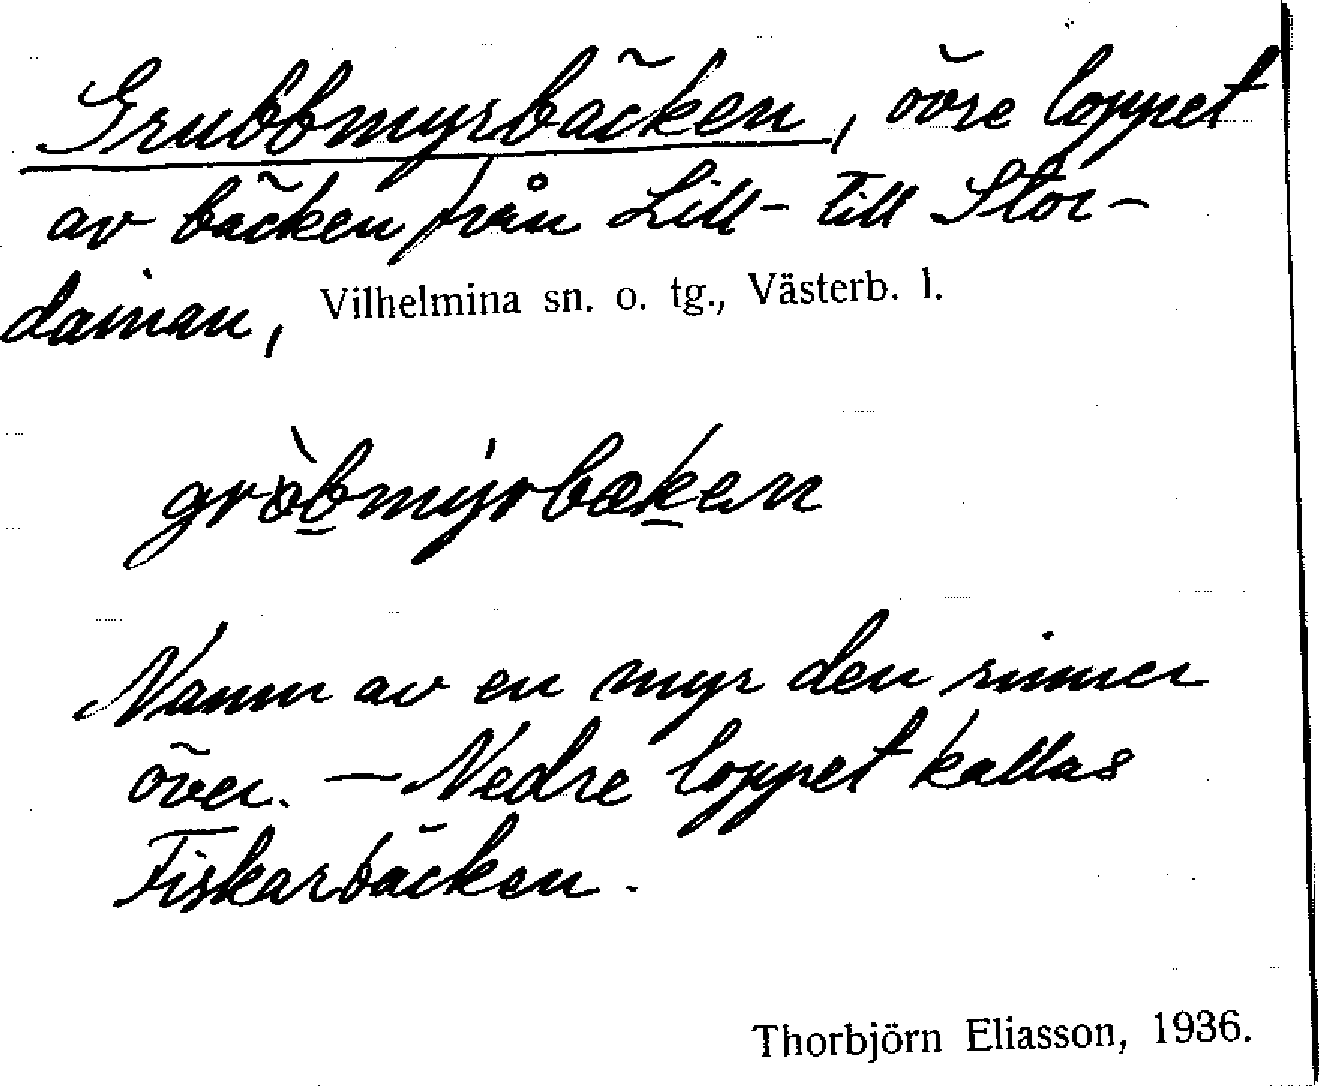 Grubbmyrbäcken, övre loppet
av bäcken från Lill- till Stor-
daiman, Vilhelmina sn. o. tg., Västerb. l.
gròbmýrbæken
Namn av en myr den rinner
över. — Nedre loppet kallas
Fiskarbäcken.
Thorbjörn Eliasson, 1936.